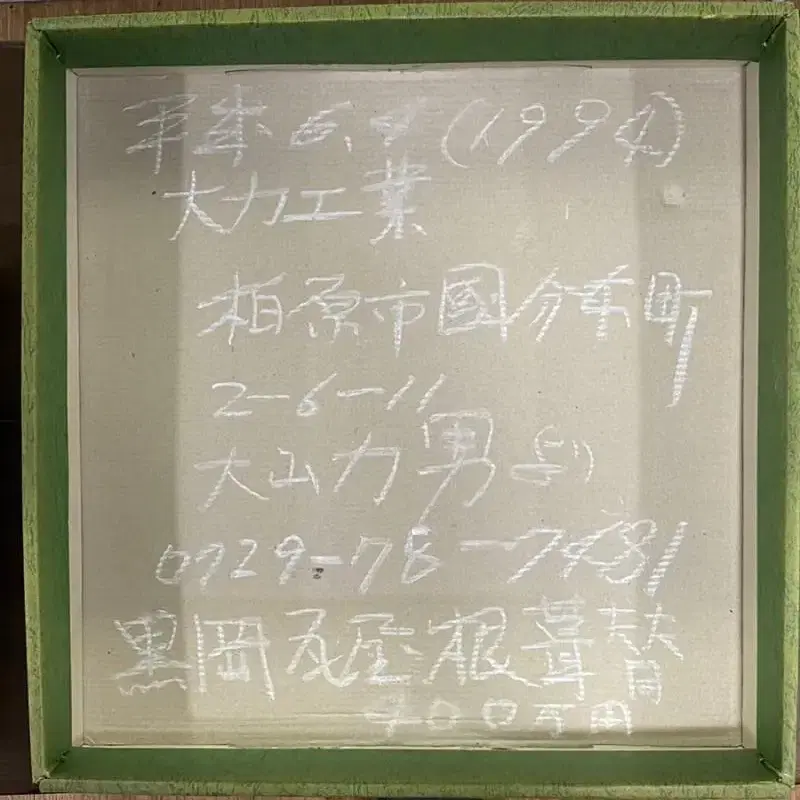 平成6.(1994)
大力工業
柏原市國分市町
2-6-11
大山力男
0729-78-7431
黒岡瓦屋根葺替
400万円